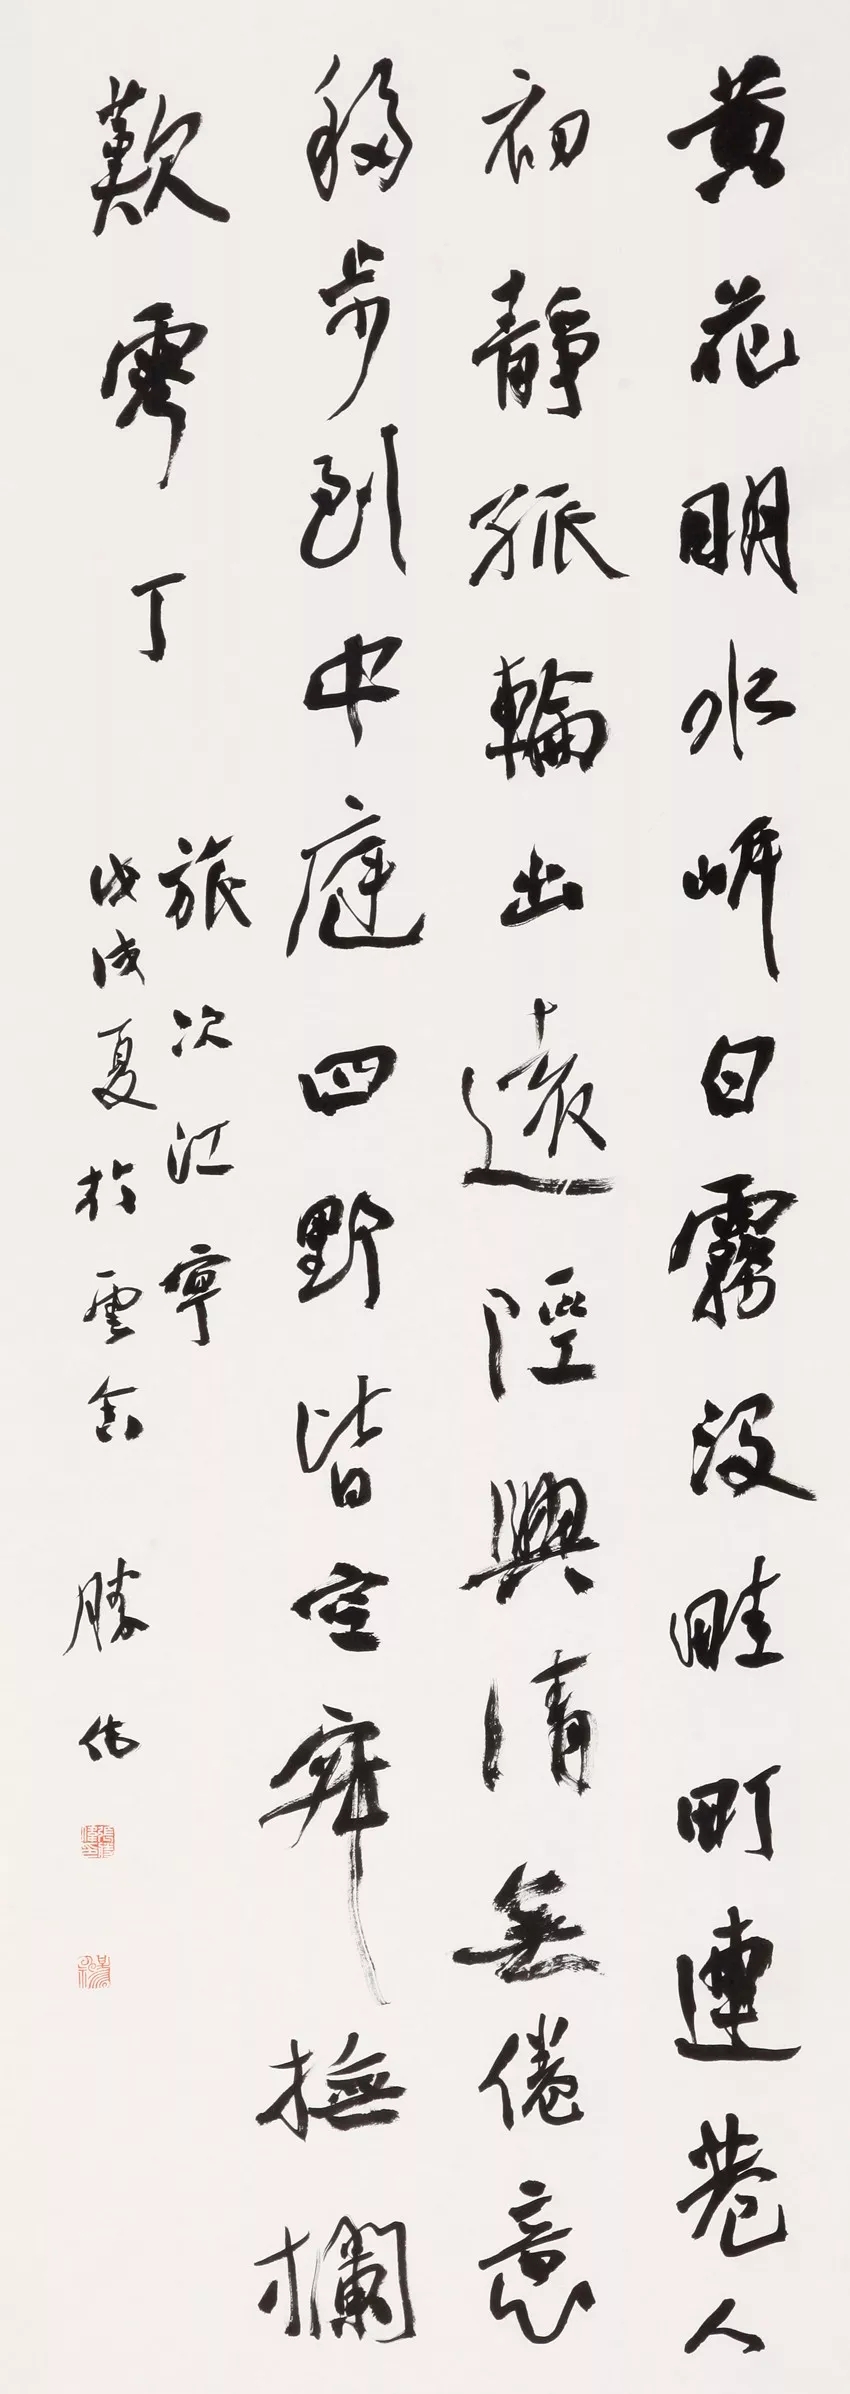 黄花明水岍白霧沒畦町連巷人
初靜孤輪出遠陘興清無倦意
移步到中庭四野皆空寂撫欄
歎零丁
旅次江寧
戊戌夏於雲舍
勝偉